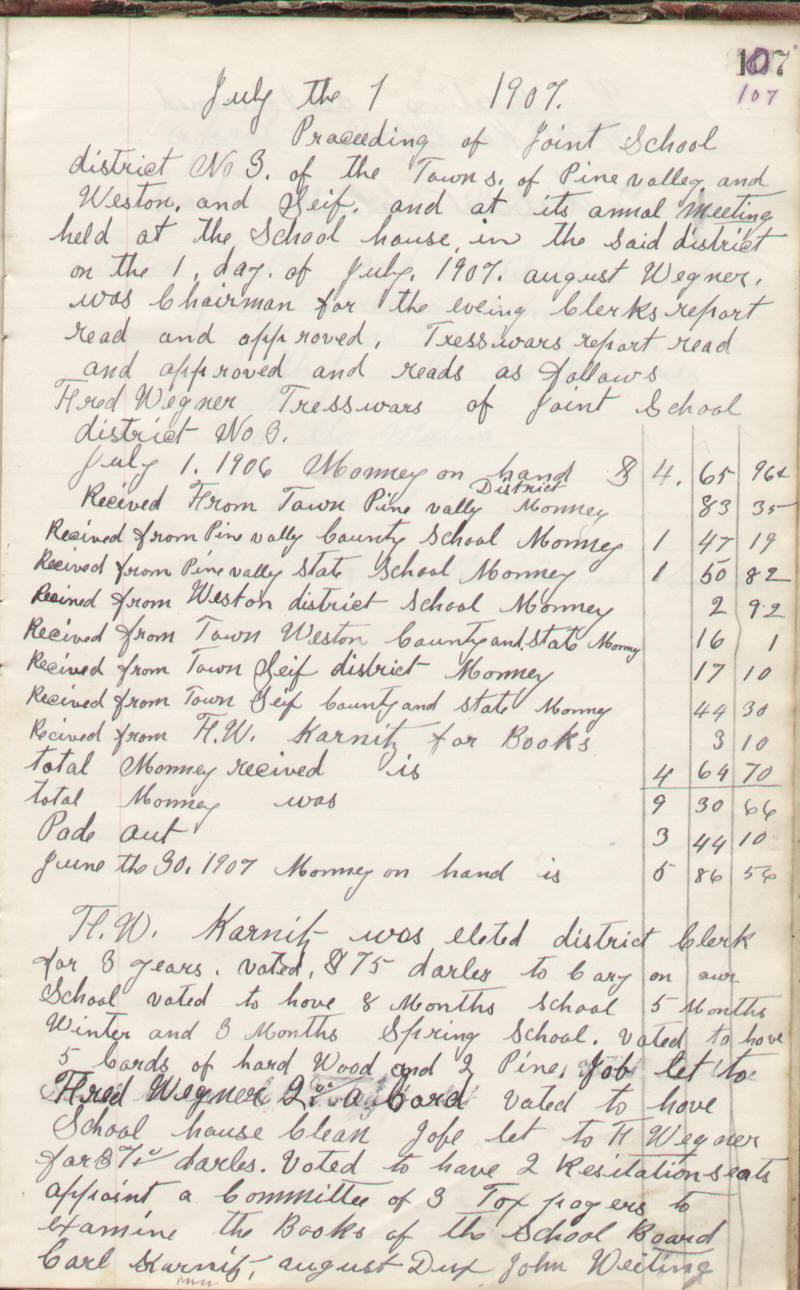 107
107
July the 1 1907.
Proceeding of Joint School
district No 3. of the Towns. of Pine valley and
Weston. and Seif. and at its annual Meeting
held at the School house, in the said district
on the 1. day. of July. 1907. august Wegner.
was Chairman for the eveing Clerks report
read and approved. Tresswars report read
and approved and reads as follows
Fred Wegner Tresswars of Joint School
district No 3.
July 1. 1906 Monney on hand $ 4. 65 96
Recived From Town Pine vally District Monney 83 35
Recived from Pine vally County School Monney 1 47 19
Recived from Pine vally state School Monney 1 50 82
Recived from Weston district School Monney 2 92
Recived from Town Weston County and state Monny 16 1
Recived from Town Seif district Monney 17 10
Recived from Town Seif County and state Monney 44 30
Recived from H.W. Karnitz for Books 3 10
total Monney recived is 4 64 70
total Monney was 9 30 66
Pade aut 3 44 10
June the 30. 1907 Monney on hand is 5 86 56
H.W. Karnitz was eleted district Clerk
for 3 years. voted. $75 darles to Cary on our
School voted to hove 8 Months School 5 Months
Winter and 3 Months Spring School. Voted to hove
5 Cords of hard Wood and 2 Pine. Job let to
Fred Wegner 2. a Cord voted to hove
School house Clean Jobe let to F Wegner
for darles. Voted to have 2 Resitation seats
appoint a Committee of 3 Tox payers to
examine the Books of the School Board
Carl Karnitz, august Dux John Weiting